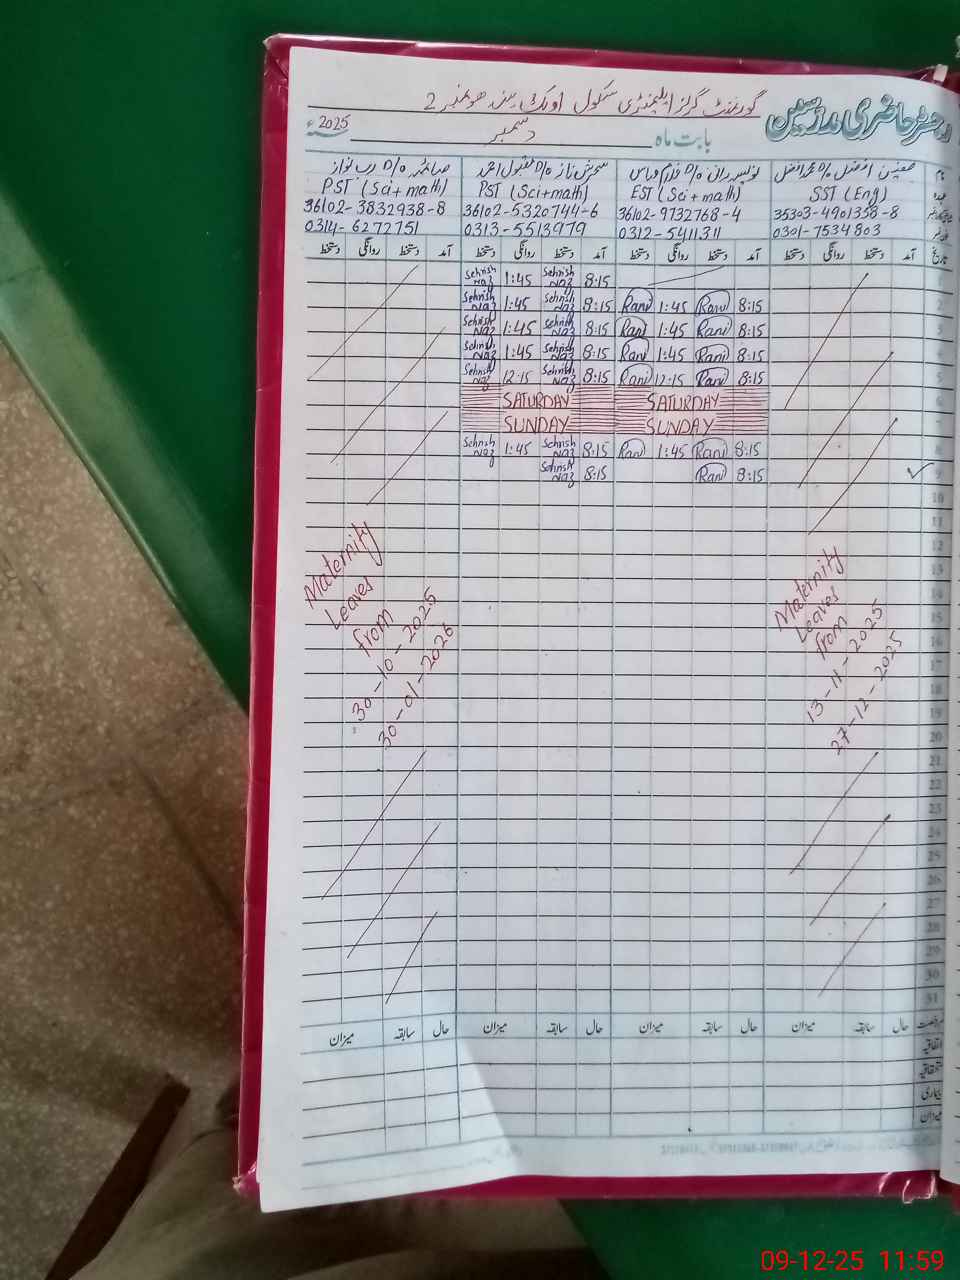 رجسٹر حاضری مدرسین
گورنمنٹ گرلز ایلیمنٹری سکول
2
بابت ماہ دسمبر 2025ء
نام
SST (Eng)
35303-4901358-8
0301-7534803
EST (Sci+math)
36102-9732768-4
0312-5411311
PST (Sci+math)
36102-5320744-6
0313-5513979
PST (Sci+math)
36102-3832938-8
0314-6272751
تاریخ آمد دستخط روانگی دستخط آمد دستخط روانگی دستخط آمد دستخط روانگی دستخط آمد دستخط روانگی دستخط
1 8:15 Sehrish Naz 1:45 Sehrish Naz
2 8:15 Rani 1:45 Rani 8:15 Sehrish Naz 1:45 Sehrish Naz
3 8:15 Rani 1:45 Rani 8:15 Sehrish Naz 1:45 Sehrish Naz
4 8:15 Rani 1:45 Rani 8:15 Sehrish Naz 1:45 Sehrish Naz
5 8:15 Rani 12:15 Rani 8:15 Sehrish Naz 12:15 Sehrish Naz
6 SATURDAY SATURDAY
7 SUNDAY SUNDAY
8 8:15 Rani 1:45 Rani 8:15 Sehrish Naz 1:45 Sehrish Naz
9 8:15 Rani 8:15 Sehrish Naz
10
11
12
13
14
15
16
17
18
19
20
21
22
23
24
25
26
27
28
29
30
31
Maternity
Leaves
from
13-11-2025
27-12-2025
Maternity
Leaves
from
30-10-2025
30-01-2026
رخصت حال سابقہ میزان حال سابقہ میزان حال سابقہ میزان حال سابقہ میزان
اتفاقیہ
استحقاقیہ
بیماری
میزان
09-12-25 11:59